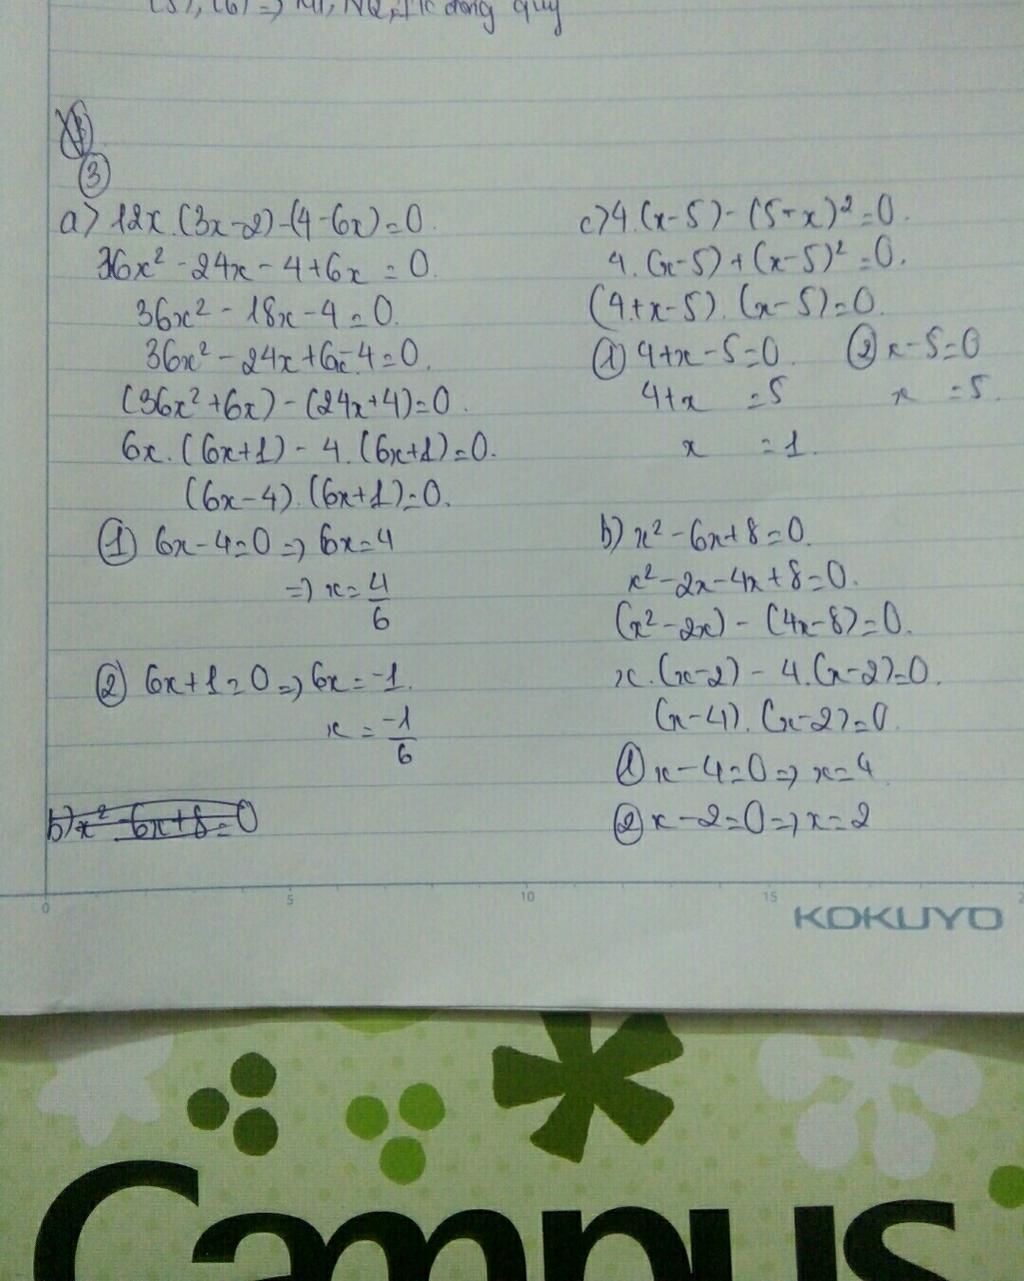 (5), (6) => đồng quy
3
a) 12x.(3x-2)-(4-6x)=0.
36x² - 24x - 4 + 6x = 0.
36x² - 18x - 4 = 0.
36x² - 24x + 6x - 4 = 0.
(36x² + 6x) - (24x + 4) = 0.
6x.(6x+1) - 4.(6x+1) = 0.
(6x-4).(6x+1) = 0.
① 6x - 4 = 0 => 6x = 4
=> x = 4/6
② 6x + 1 = 0 => 6x = -1.
x = -1/6
b) x² - 6x + 8 = 0
c) 4.(x-5) - (5-x)² = 0.
4.(x-5) + (x-5)² = 0.
(4+x-5).(x-5) = 0.
① 4+x-5=0. ② x-5=0
4+x = 5 x = 5.
x = 1.
b) x² - 6x + 8 = 0.
x² - 2x - 4x + 8 = 0.
(x² - 2x) - (4x - 8) = 0.
x.(x-2) - 4.(x-2) = 0.
(x-4).(x-2) = 0.
① x - 4 = 0 => x = 4
② x - 2 = 0 => x = 2
0 5 10 15
KOKUYO
Campus